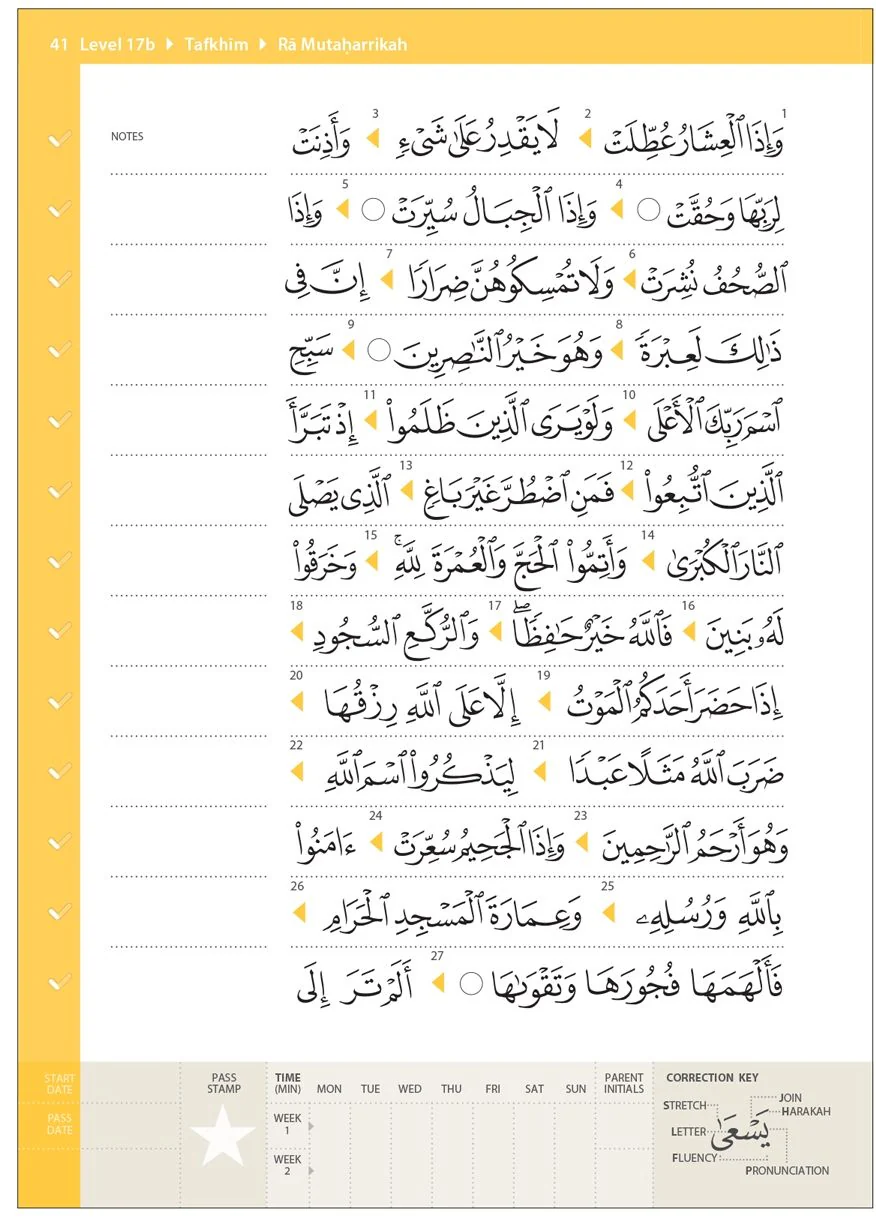 41 Level 17b ▶ Tafkhīm ▶ Rā Mutaḥarrikah
NOTES
1 وَإِذَا ٱلْعِشَارُ عُطِّلَتْ 2 لَا يَقْدِرُ عَلَىٰ شَىْءٍ 3 وَأَذِنَتْ
لِرَبِّهَا وَحُقَّتْ ○ 4 وَإِذَا ٱلْجِبَالُ سُيِّرَتْ ○ 5 وَإِذَا
ٱلصُّحُفُ نُشِرَتْ 6 وَلَا تُمْسِكُوهُنَّ ضِرَارًا 7 إِنَّ فِى
ذَٰلِكَ لَعِبْرَةً 8 وَهُوَ خَيْرُ ٱلنَّـٰصِرِينَ ○ 9 سَبِّحِ
ٱسْمَ رَبِّكَ ٱلْأَعْلَى 10 وَلَوْ يَرَى ٱلَّذِينَ ظَلَمُوٓا۟ 11 إِذْ تَبَرَّأَ
ٱلَّذِينَ ٱتُّبِعُوا۟ 12 فَمَنِ ٱضْطُرَّ غَيْرَ بَاغٍ 13 ٱلَّذِى يَصْلَى
ٱلنَّارَ ٱلْكُبْرَىٰ 14 وَأَتِمُّوا۟ ٱلْحَجَّ وَٱلْعُمْرَةَ لِلَّهِ ۚ 15 وَخَرَقُوا۟
لَهُۥ بَنِينَ 16 فَٱللَّهُ خَيْرٌ حَـٰفِظًا ۖ 17 وَٱلرُّكَّعِ ٱلسُّجُودِ 18
إِذَا حَضَرَ أَحَدَكُمُ ٱلْمَوْتُ 19 إِلَّا عَلَى ٱللَّهِ رِزْقُهَا 20
ضَرَبَ ٱللَّهُ مَثَلًا عَبْدًا 21 لِيَذْكُرُوا۟ ٱسْمَ ٱللَّهِ 22
وَهُوَ أَرْحَمُ ٱلرَّٰحِمِينَ 23 وَإِذَا ٱلْجَحِيمُ سُعِّرَتْ 24 ءَامَنُوا۟
بِٱللَّهِ وَرُسُلِهِۦ 25 وَعِمَارَةَ ٱلْمَسْجِدِ ٱلْحَرَامِ 26
فَأَلْهَمَهَا فُجُورَهَا وَتَقْوَىٰهَا ○ 27 أَلَمْ تَرَ إِلَى
START DATE
PASS DATE
PASS STAMP
TIME (MIN) MON TUE WED THU FRI SAT SUN
WEEK 1
WEEK 2
PARENT INITIALS
CORRECTION KEY
STRETCH
JOIN
HARAKAH
LETTER
يَسْعَىٰ
FLUENCY
PRONUNCIATION